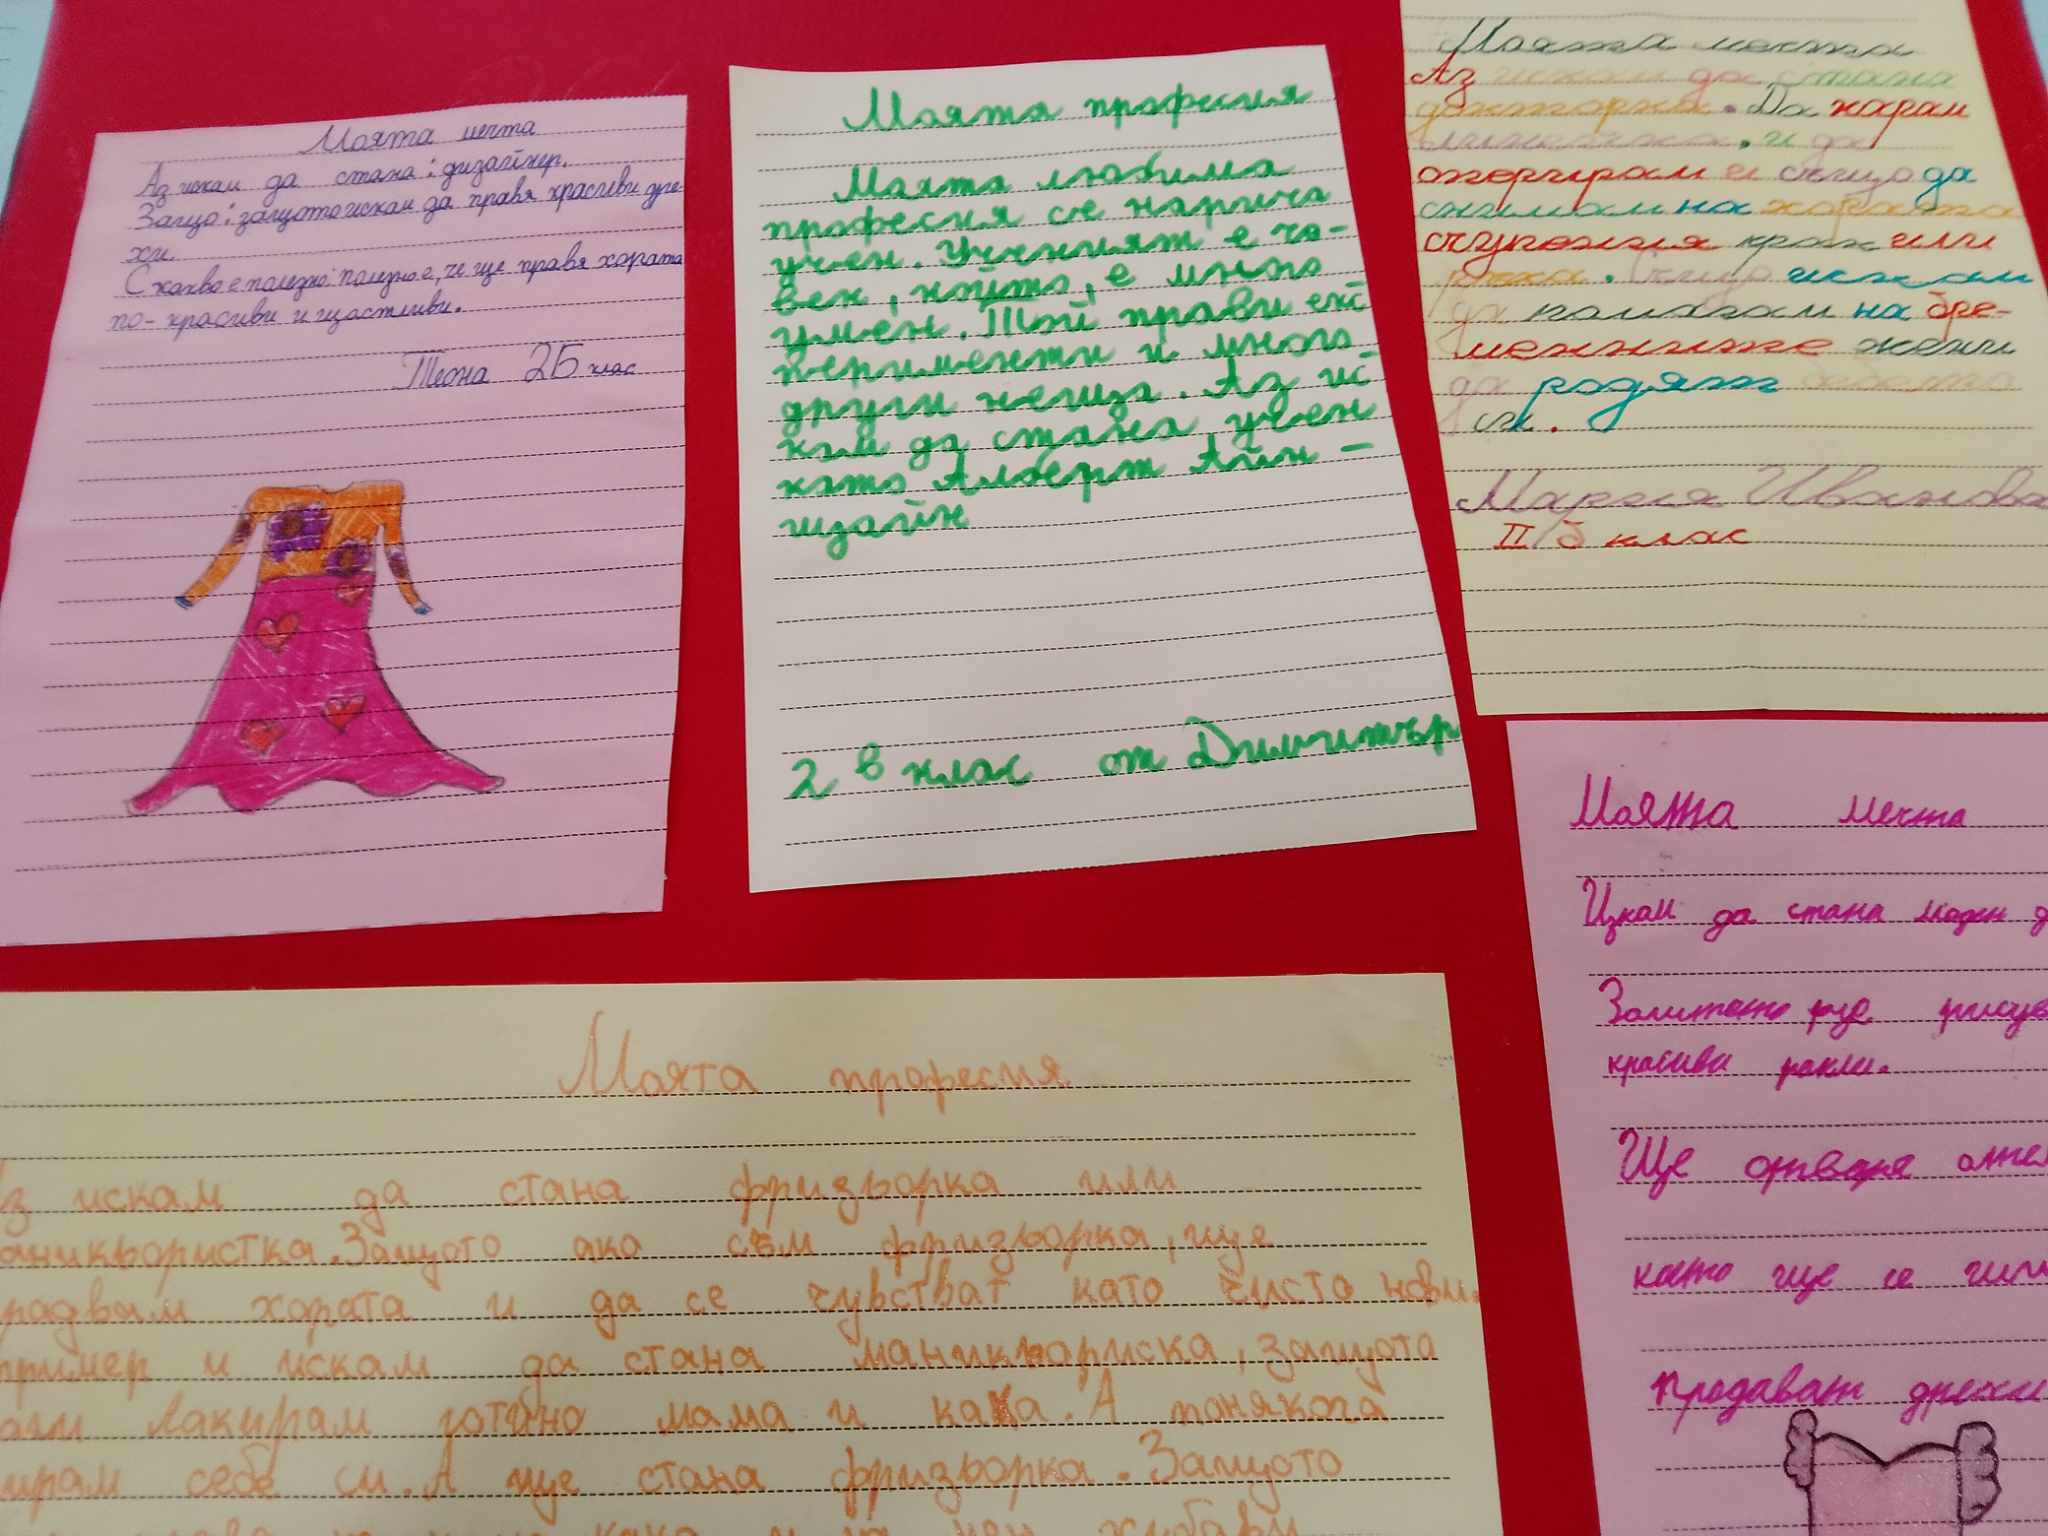 Моята мечта
Аз искам да стана: дизайнер.
Защо: защото искам да правя красиви дре-
хи.
С какво е полезно: полезно е, че ще правя хората
по-красиви и щастливи.
Теона 2Б клас
Моята професия
Моята любима
професия се нарича
учен. Ученият е чо-
век, който, е много
умен. Той прави екс
перименти и много
други неща. Аз ис-
кам да стана учен
като Алберт Айн-
щайн
2 в клас от Димитър
Моята мечта
Аз искам да стана
докторка. Да карам
линейка. и да
оперирам и също да
снимам на хората
счупения крак или
ръка. Също искам
да помагам на бре-
менните жени
да родят бебета
си.
Мария Иванова
II б клас
Моята мечта
Искам да стана моден д
Защото ще рисув
красиви рокли.
Ще отворя ател
което ще се
продават дрехи
Моята професия
з искам да стана фризьорка или
аникюристка. Защото ако съм фризьорка, ще
радвам хората и да се чувстват като чисто нови.
пример и искам да стана маникюриска, защото
лакирам готино мама и кака. А понякога
ирам себе си. А ще стана фризьорка. Защото
кака и